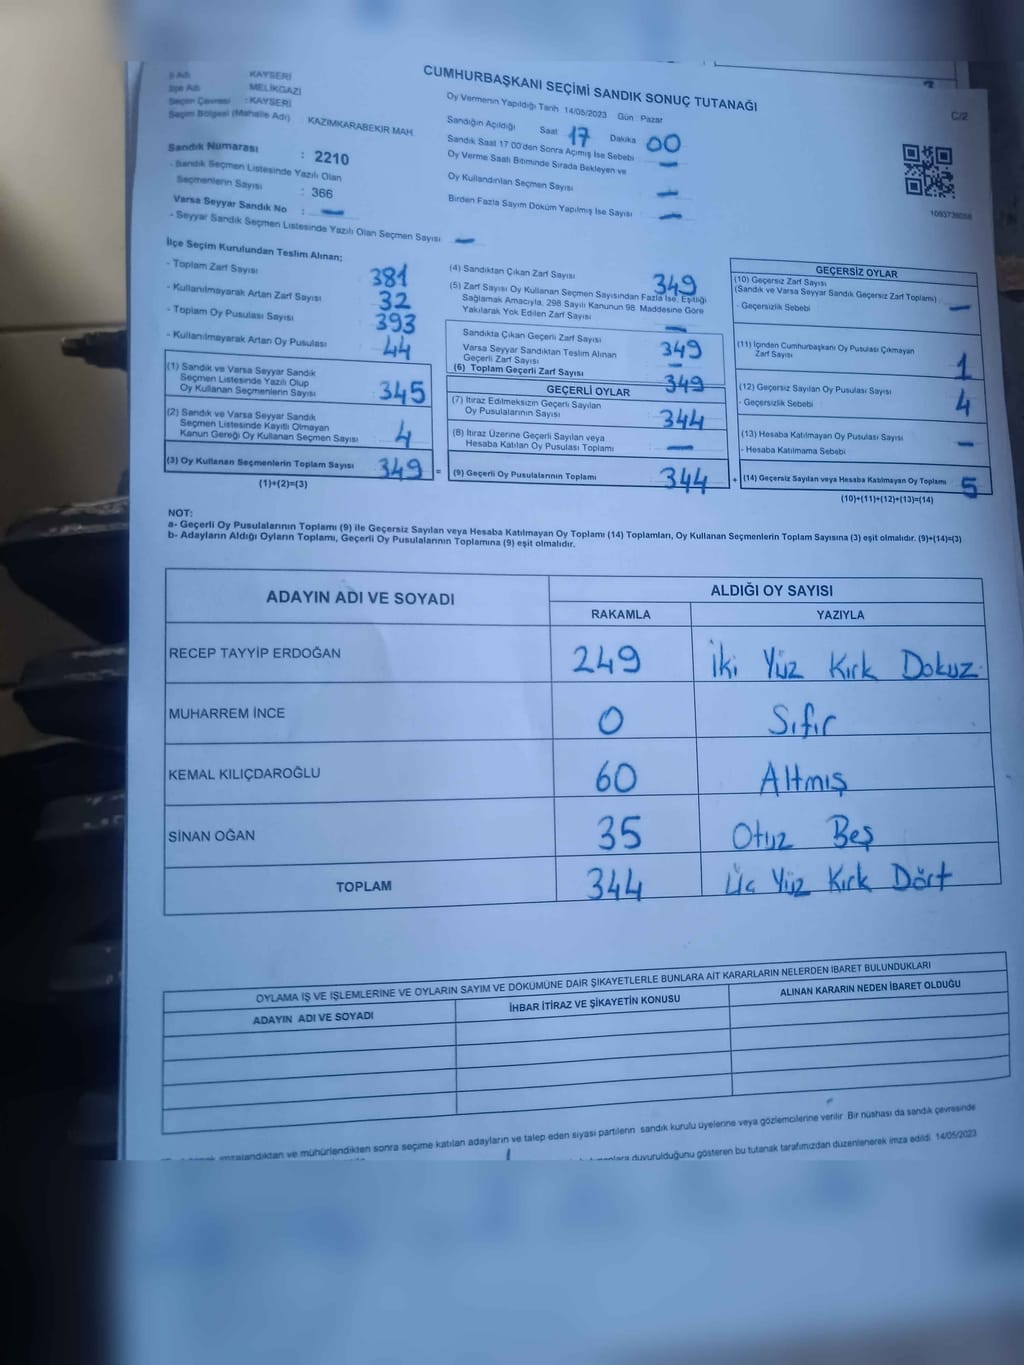 CUMHURBAŞKANI SEÇİMİ SANDIK SONUÇ TUTANAĞI
C/2
İl Adı KAYSERİ
İlçe Adı MELİKGAZİ
Seçim Çevresi : KAYSERİ
Seçim Bölgesi (Mahalle Adı) KAZIMKARABEKIR MAH.
Sandık Numarası : 2210
- Sandık Seçmen Listesinde Yazılı Olan
Seçmenlerin Sayısı : 366
Varsa Seyyar Sandık No : —
- Seyyar Sandık Seçmen Listesinde Yazılı Olan Seçmen Sayısı —
Oy Vermenin Yapıldığı Tarih 14/05/2023 Gün Pazar
Sandığın Açıldığı Saat 17 Dakika 00
Sandık Saat 17 00'den Sonra Açımış İse Sebebi —
Oy Verme Saati Bitiminde Sırada Bekleyen ve
Oy Kullandırılan Seçmen Sayısı —
Birden Fazla Sayım Döküm Yapılmış İse Sayısı —
1093736058
İlçe Seçim Kurulundan Teslim Alınan;
- Toplam Zarf Sayısı 381
- Kullanılmayarak Artan Zarf Sayısı 32
- Toplam Oy Pusulası Sayısı 393
- Kullanılmayarak Artan Oy Pusulası 44
(1) Sandık ve Varsa Seyyar Sandık
Seçmen Listesinde Yazılı Olup
Oy Kullanan Seçmenlerin Sayısı 345
(2) Sandık ve Varsa Seyyar Sandık
Seçmen Listesinde Kayıtlı Olmayan
Kanun Gereği Oy Kullanan Seçmen Sayısı 4
(3) Oy Kullanan Seçmenlerin Toplam Sayısı 349 =
(1)+(2)=(3)
(4) Sandıktan Çıkan Zarf Sayısı 349
(5) Zarf Sayısı Oy Kullanan Seçmen Sayısından Fazla İse, Eşitliği
Sağlamak Amacıyla, 298 Sayılı Kanunun 98. Maddesine Göre
Yakılarak Yok Edilen Zarf Sayısı —
Sandıkta Çıkan Geçerli Zarf Sayısı 349
Varsa Seyyar Sandıktan Teslim Alınan
Geçerli Zarf Sayısı —
(6) Toplam Geçerli Zarf Sayısı 349
GEÇERLİ OYLAR
(7) İtiraz Edilmeksizin Geçerli Sayılan
Oy Pusulalarının Sayısı 344
(8) İtiraz Üzerine Geçerli Sayılan veya
Hesaba Katılan Oy Pusulası Toplamı —
(9) Geçerli Oy Pusulalarının Toplamı 344 +
GEÇERSİZ OYLAR
(10) Geçersiz Zarf Sayısı
(Sandık ve Varsa Seyyar Sandık Geçersiz Zarf Toplamı) —
- Geçersizlik Sebebi
(11) İçinden Cumhurbaşkanı Oy Pusulası Çıkmayan
Zarf Sayısı 1
(12) Geçersiz Sayılan Oy Pusulası Sayısı 4
- Geçersizlik Sebebi
(13) Hesaba Katılmayan Oy Pusulası Sayısı —
- Hesaba Katılmama Sebebi
(14) Geçersiz Sayılan veya Hesaba Katılmayan Oy Toplamı 5
(10)+(11)+(12)+(13)=(14)
NOT:
a- Geçerli Oy Pusulalarının Toplamı (9) ile Geçersiz Sayılan veya Hesaba Katılmayan Oy Toplamı (14) Toplamları, Oy Kullanan Seçmenlerin Toplam Sayısına (3) eşit olmalıdır. (9)+(14)=(3)
b- Adayların Aldığı Oyların Toplamı, Geçerli Oy Pusulalarının Toplamına (9) eşit olmalıdır.
ADAYIN ADI VE SOYADI ALDIĞI OY SAYISI
RAKAMLA YAZIYLA
RECEP TAYYİP ERDOĞAN 249 İki Yüz Kırk Dokuz
MUHARREM İNCE 0 Sıfır
KEMAL KILIÇDAROĞLU 60 Altmış
SİNAN OĞAN 35 Otuz Beş
TOPLAM 344 Üç Yüz Kırk Dört
OYLAMA İŞ VE İŞLEMLERİNE VE OYLARIN SAYIM VE DÖKÜMÜNE DAİR ŞİKAYETLERLE BUNLARA AİT KARARLARIN NELERDEN İBARET BULUNDUKLARI
ADAYIN ADI VE SOYADI İHBAR İTİRAZ VE ŞİKAYETİN KONUSU ALINAN KARARIN NEDEN İBARET OLDUĞU
imzalandıktan ve mühürlendikten sonra seçime katılan adayların ve talep eden siyasi partilerin sandık kurulu üyelerine veya gözlemcilerine verilir Bir nüshası da sandık çevresinde
duyurulduğunu gösteren bu tutanak tarafımızdan düzenlenerek imza edildi. 14/05/2023